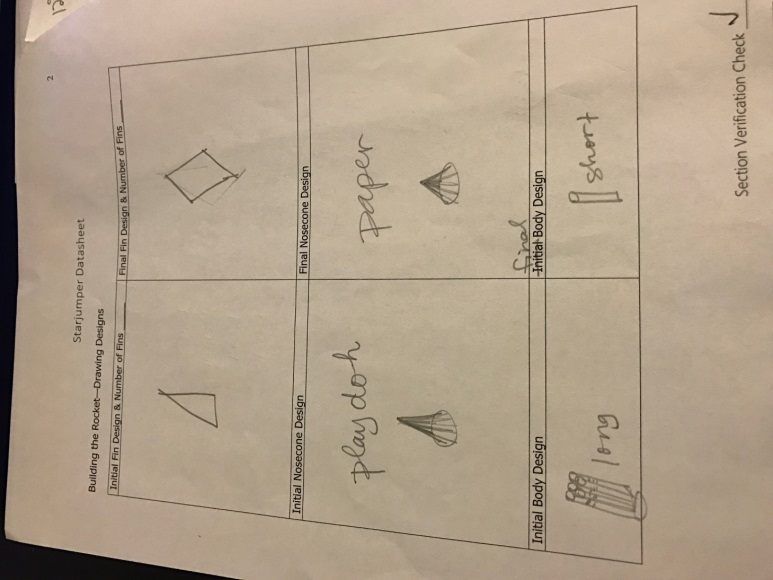 2
Starjumper Datasheet
Building the Rocket—Drawing Designs
Initial Fin Design & Number of Fins ____
Final Fin Design & Number of Fins ____
Initial Nosecone Design
Final Nosecone Design
playdoh
paper
Initial Body Design
final
Initial Body Design
long
short
Section Verification Check ✓